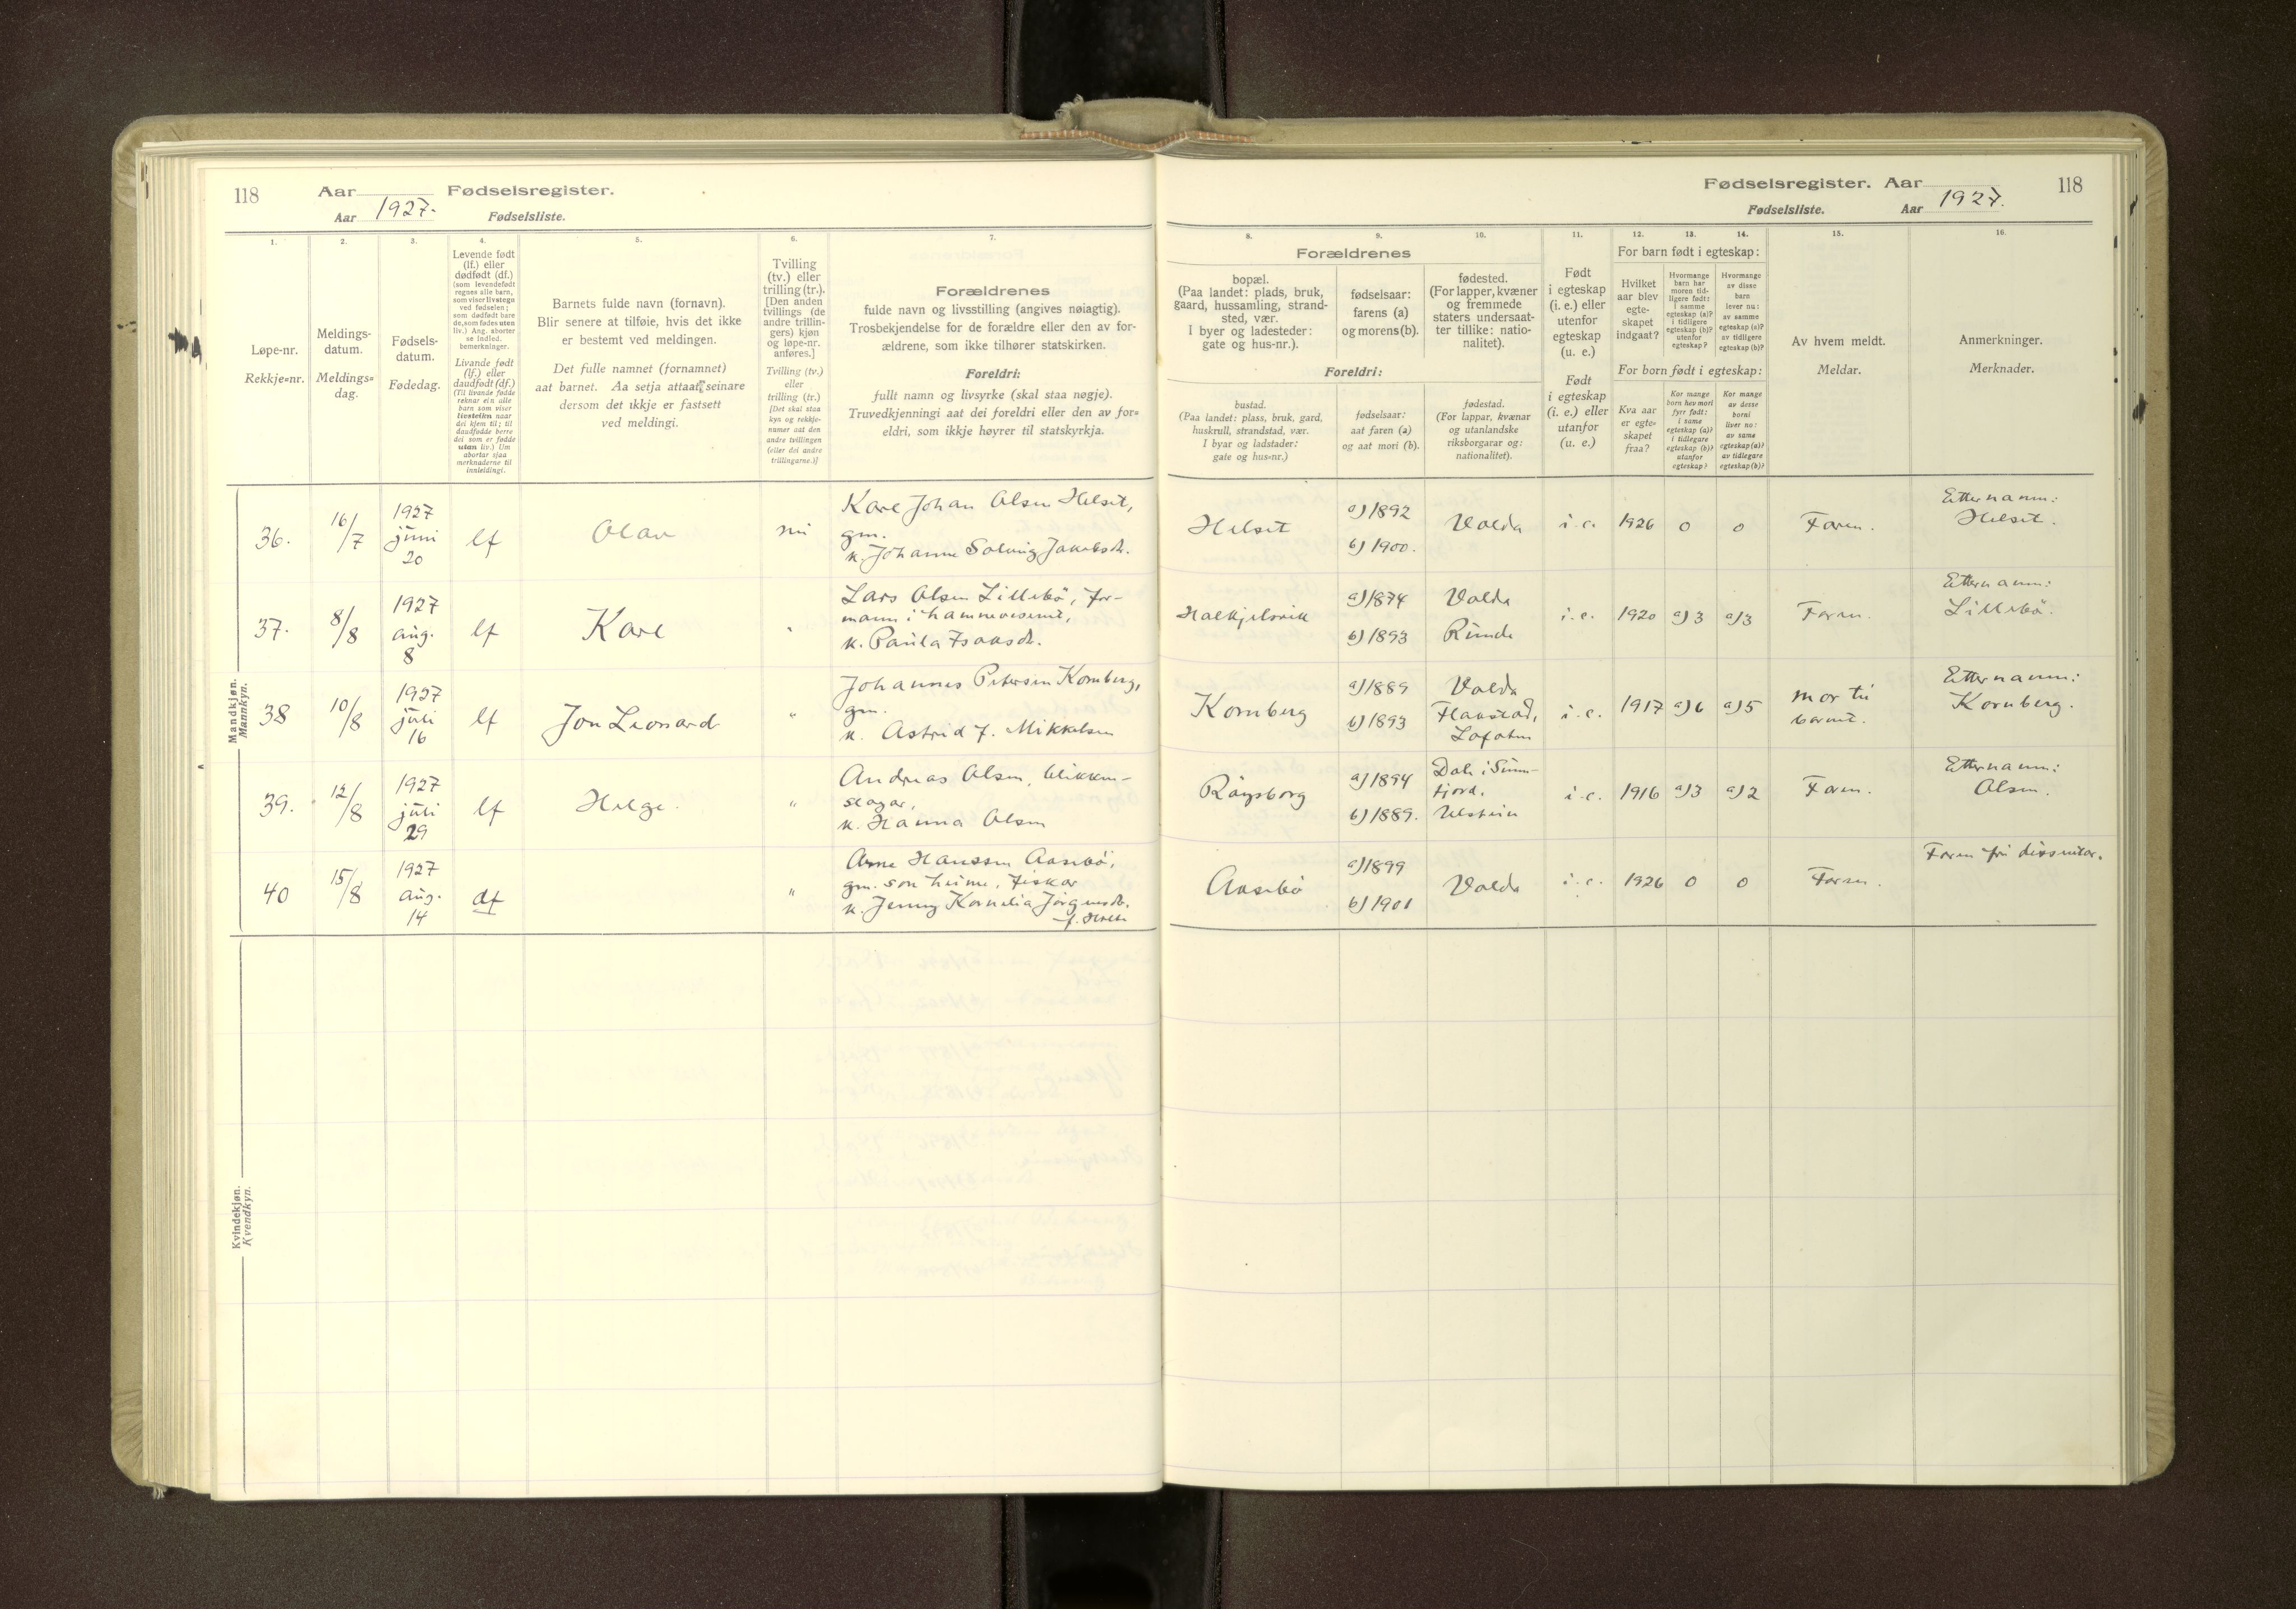 118 Aar Fødselsregister.
Aar 1927. Fødselsliste.
Fødselsregister. Aar 118
Fødselsliste. Aar 1927.
1. 2. 3. 4. 5. 6. 7.
Løpe-nr.
Rekkje=nr.
Meldings-
datum.
Meldings=
dag.
Fødsels-
datum.
Fødedag.
Levende født
(lf.) eller
dødfødt (df.)
(som levendefødt
regnes alle barn,
som viser livstegn
ved fødselen;
som dødfødt bare
de, som fødes uten
liv.) Ang. aborter
se indled.
bemerkninger.
Livande født
(lf.) eller
daudfødt (df.)
(Til livande fødde
reknar ein alle
barn som viser
livsteikn naar
dei kjem til; til
daudfødde berre
dei som er fødde
utan liv.) Um
abortar sjaa
merknaderne til
innleidingi.
Barnets fulde navn (fornavn).
Blir senere at tilføie, hvis det ikke
er bestemt ved meldingen.
Det fulle namnet (fornamnet)
aat barnet. Aa setja attaat seinare
dersom det ikkje er fastsett
ved meldingi.
Tvilling
(tv.) eller
trilling (tr.).
[Den anden
tvillings (de
andre trillin-
gers) kjøn
og løpe-nr.
anføres.]
Tvilling (tv.)
eller
trilling (tr.)
[Det skal staa
kyn og rekkje-
numer aat den
andre tvillingen
(eller dei andre
trillingarne.)]
Forældrenes
fulde navn og livsstilling (angives nøiagtig).
Trosbekjendelse for de forældre eller den av for-
ældrene, som ikke tilhører statskirken.
Foreldri:
fullt namn og livsyrke (skal staa nøgje).
Truvedkjenningi aat dei foreldri eller den av for=
eldri, som ikkje høyrer til statskyrkja.
8. 9. 10. 11. 12. 13. 14. 15. 16.
Forældrenes
bopæl.
(Paa landet: plads, bruk,
gaard, hussamling, strand-
sted, vær.
I byer og ladesteder:
gate og hus-nr.).
fødselsaar:
farens (a)
og morens (b).
fødested.
(For lapper, kvæner
og fremmede
staters undersaat-
ter tillike: natio-
nalitet).
Foreldri:
bustad.
(Paa landet: plass, bruk, gard,
huskrull, strandstad, vær.
I byar og ladstader:
gate og hus=nr.)
fødselsaar:
aat faren (a)
og aat mori (b).
fødestad.
(For lappar, kvænar
og utanlandske
riksborgarar og:
nationalitet).
Født
i egteskap
(i. e.) eller
utenfor
egteskap
(u. e.)
Født
i egteskap
(i. e.) eller
utanfor
(u. e.)
For barn født i egteskap:
Hvilket
aar blev
egte-
skapet
indgaat?
Hvormange
barn har
moren tid-
ligere født:
i samme
egteskap (a)?
i tidligere
egteskap (b)?
utenfor
egteskap?
Hvormange
av disse
barn
lever nu:
av samme
egteskap (a)?
av tidligere
egteskap (b)?
For born født i egteskap:
Kva aar
er egte=
skapet
fraa?
Kor mange
born hev mori
fyrr født:
i same
egteskap (a)?
i tidlegare
egteskap (b)?
utanfor
egteskap?
Kor mange
av desse
borni
liver no:
av same
egteskap (a)?
av tidlegare
egteskap (b)?
Av hvem meldt.
Meldar.
Anmerkninger.
Merknader.
Mandkjøn.
Mannkyn.
36. 16/7 1927 juni 20 lf Olav nei
Karl Johan Olsen Helset,
gm.
k. Johanne Solveig Jakobsdr.
Helset a) 1892 b) 1900. Volda i. e. 1926 0 0 Faren.
Etternamn:
Helset.
37. 8/8 1927 aug. 8 lf Kare "
Lars Olsen Lillebö, for-
mann i hamnevesenet,
k. Paula Isaksdr.
Halkjelsvik a) 1874 b) 1893 Volda Runde i. e. 1920 a) 3 a) 3 Faren.
Etternamn:
Lillebö.
38 10/8 1927 juli 16 lf Jon Leonard "
Johannes Petersen Kornberg,
gm.
k. Astrid f. Mikkelsen
Kornberg a) 1889 b) 1893 Volda Flakstad, Lofoten i. e. 1917 a) 6 a) 5 Mor til barnet.
Etternamn:
Kornberg.
39. 12/8 1927 juli 29 lf Helge. "
Andreas Olsen, blikken-
slagar,
k. Hanna Olsen
Röysborg a) 1894 b) 1889. Dale i Sunn-fjord. Ulstein i. e. 1916 a) 3 a) 2 Faren.
Etternamn:
Olsen.
40 15/8 1927 aug. 14 df "
Arne Hanssen Aasebö,
gm. son heime, fiskar
k. Jenny Kornelia Jörgensdr.
Aasebö a) 1899 b) 1901 Volda i. e. 1926 0 0 Faren.
Faren fri dissenter.
Kvindekjøn.
Kvendkyn.